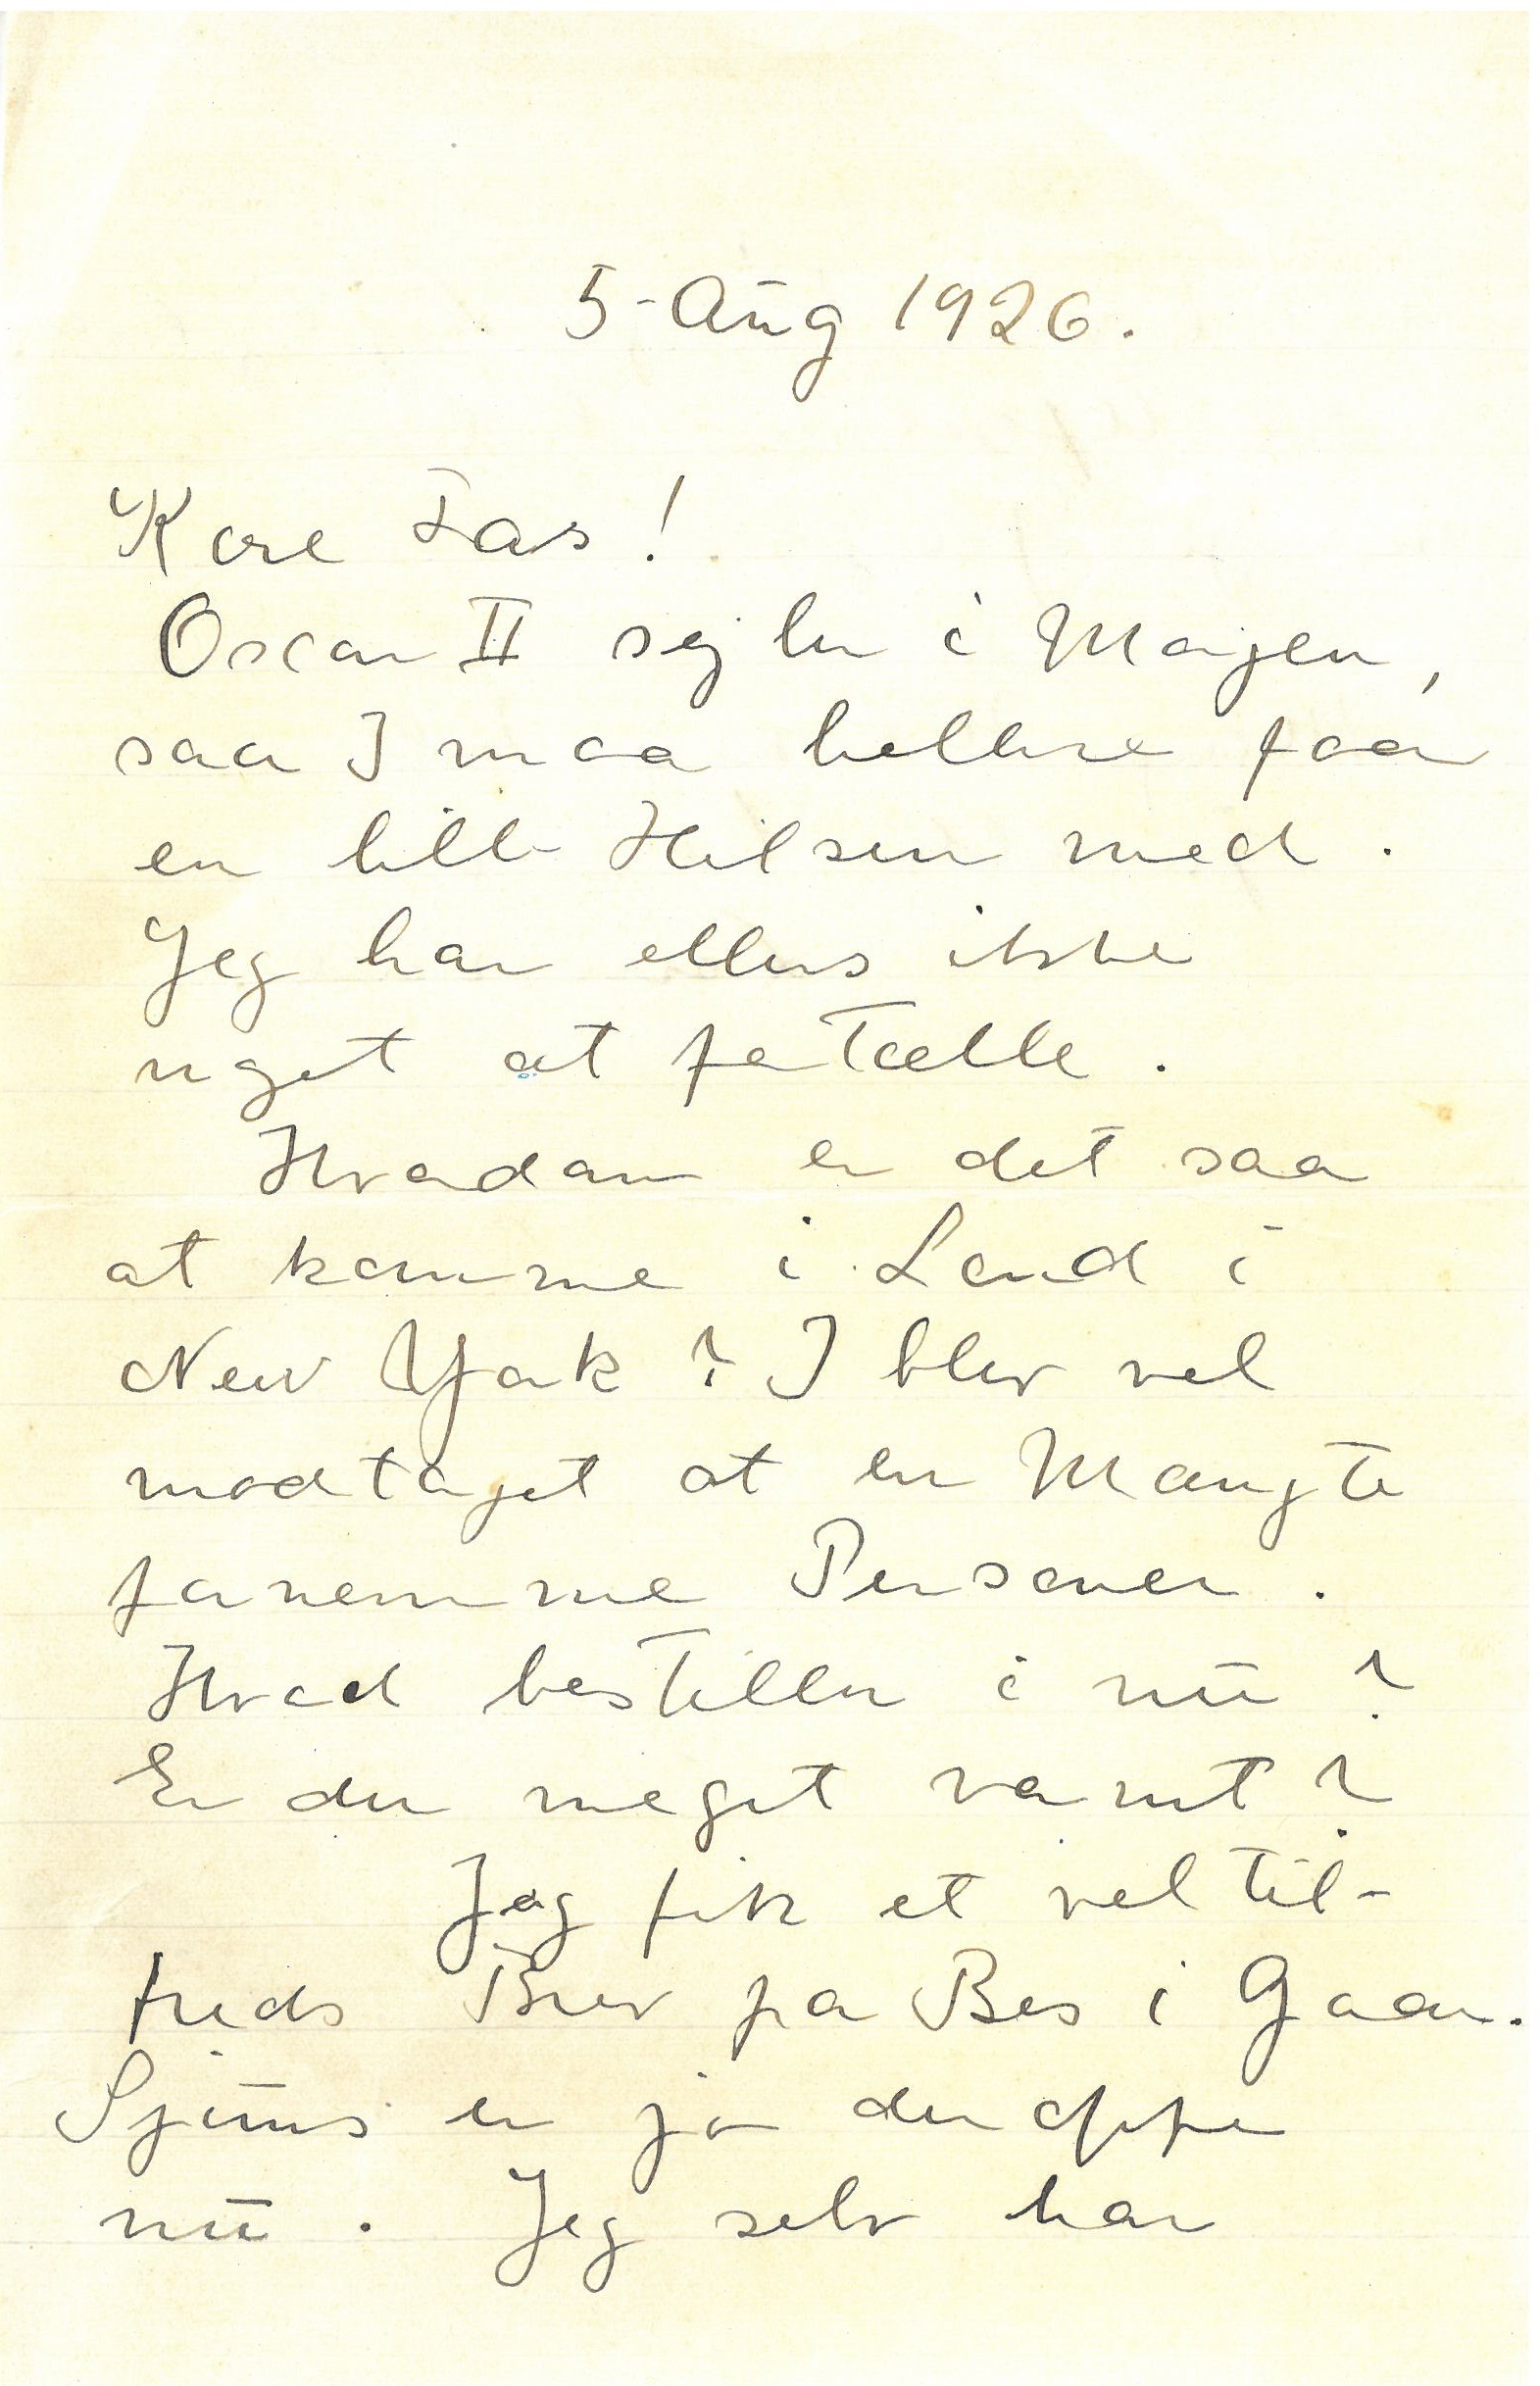 5-Aug 1926.
Kære Fas!
Oscar II sejler i Morgen,
saa I maa hellere faa
en lille Hilsen med.
Jeg har ellers ikke
noget at fortælle.
Hvordan er det saa
at komme i Land i
New York? I blev vel
modtaget af en Mængte
fornemme Personer.
Hvad bestiller i nu?
Er der meget varmt?
Jeg fik et veltil-
freds Brev fra Bes i Gaar.
er jo deroppe
nu. Jeg selv har